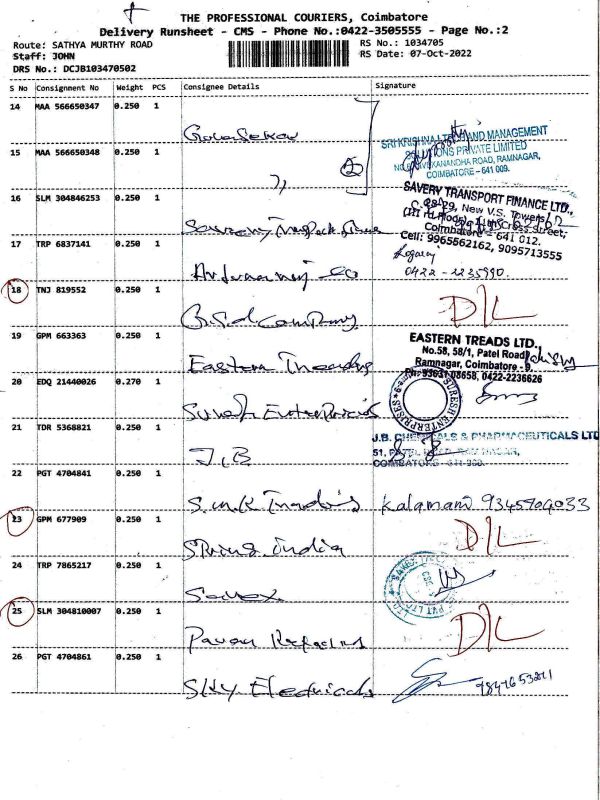 THE PROFESSIONAL COURIERS, Coimbatore
Delivery Runsheet - CMS - Phone No.:0422-3505555 - Page No.:2
Route: SATHYA MURTHY ROAD RS No.: 1034705
Staff: JOHN RS Date: 07-Oct-2022
DRS No.: DCJB103470502
S No Consignment No Weight PCS Consignee Details Signature
14 MAA 566650347 0.250 1
SRI KRISHNA LAND MANAGEMENT
SOLUTIONS PRIVATE LIMITED
15 MAA 566650348 0.250 1
VIVEKANANDHA ROAD, RAMNAGAR,
COIMBATORE - 641 009.
16 SLM 304846253 0.250 1
SAVERY TRANSPORT FINANCE LTD.,
28-29, New V.S. Towers
Cross Street,
Coimbatore - 641 012.
Cell: 9965562162, 9095713555
17 TRP 6837141 0.250 1
0422 - 2235990.
18 TNJ 819552 0.250 1
Company D/L
19 GPM 663363 0.250 1
Eastern Treads
EASTERN TREADS LTD.,
No.58, 58/1, Patel Road
Ramnagar, Coimbatore - 9.
Ph: 93631 08658, 0422-2236626
20 EDQ 21440026 0.270 1
Suresh Enterprises
SURESH ENTERPRISES
21 TDR 5368821 0.250 1
J.B
J.B. CHEMICALS & PHARMACEUTICALS LTD
51, PATEL ROAD, RAM NAGAR,
COIMBATORE
22 PGT 4704841 0.250 1
S.M.K Traders Kalamani 9345904033
23 GPM 677909 0.250 1
India D/L
24 TRP 7865217 0.250 1
Savex
25 SLM 304810007 0.250 1
Pavan D/L
26 PGT 4704861 0.250 1
Sky Electricals